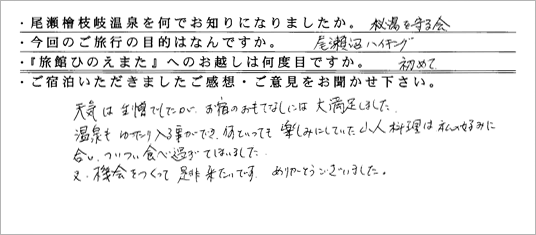 ・尾瀬檜枝岐温泉を何でお知りになりましたか。 秘湯を守る会
・今回のご旅行の目的はなんですか。 尾瀬沼ハイキング
・『旅館ひのえまた』へのお越しは何度目ですか。 初めて
・ご宿泊いただきましたご感想・ご意見をお聞かせ下さい。
天気は生憎でしたが、お宿のおもてなしには大満足しました。
温泉もゆったり入る事ができ、何といっても楽しみにしていた山人料理は私の好みに
合い、ついつい食べ過ぎてしまいました。
又、機会をつくって是非来たいです。ありがとうございました。